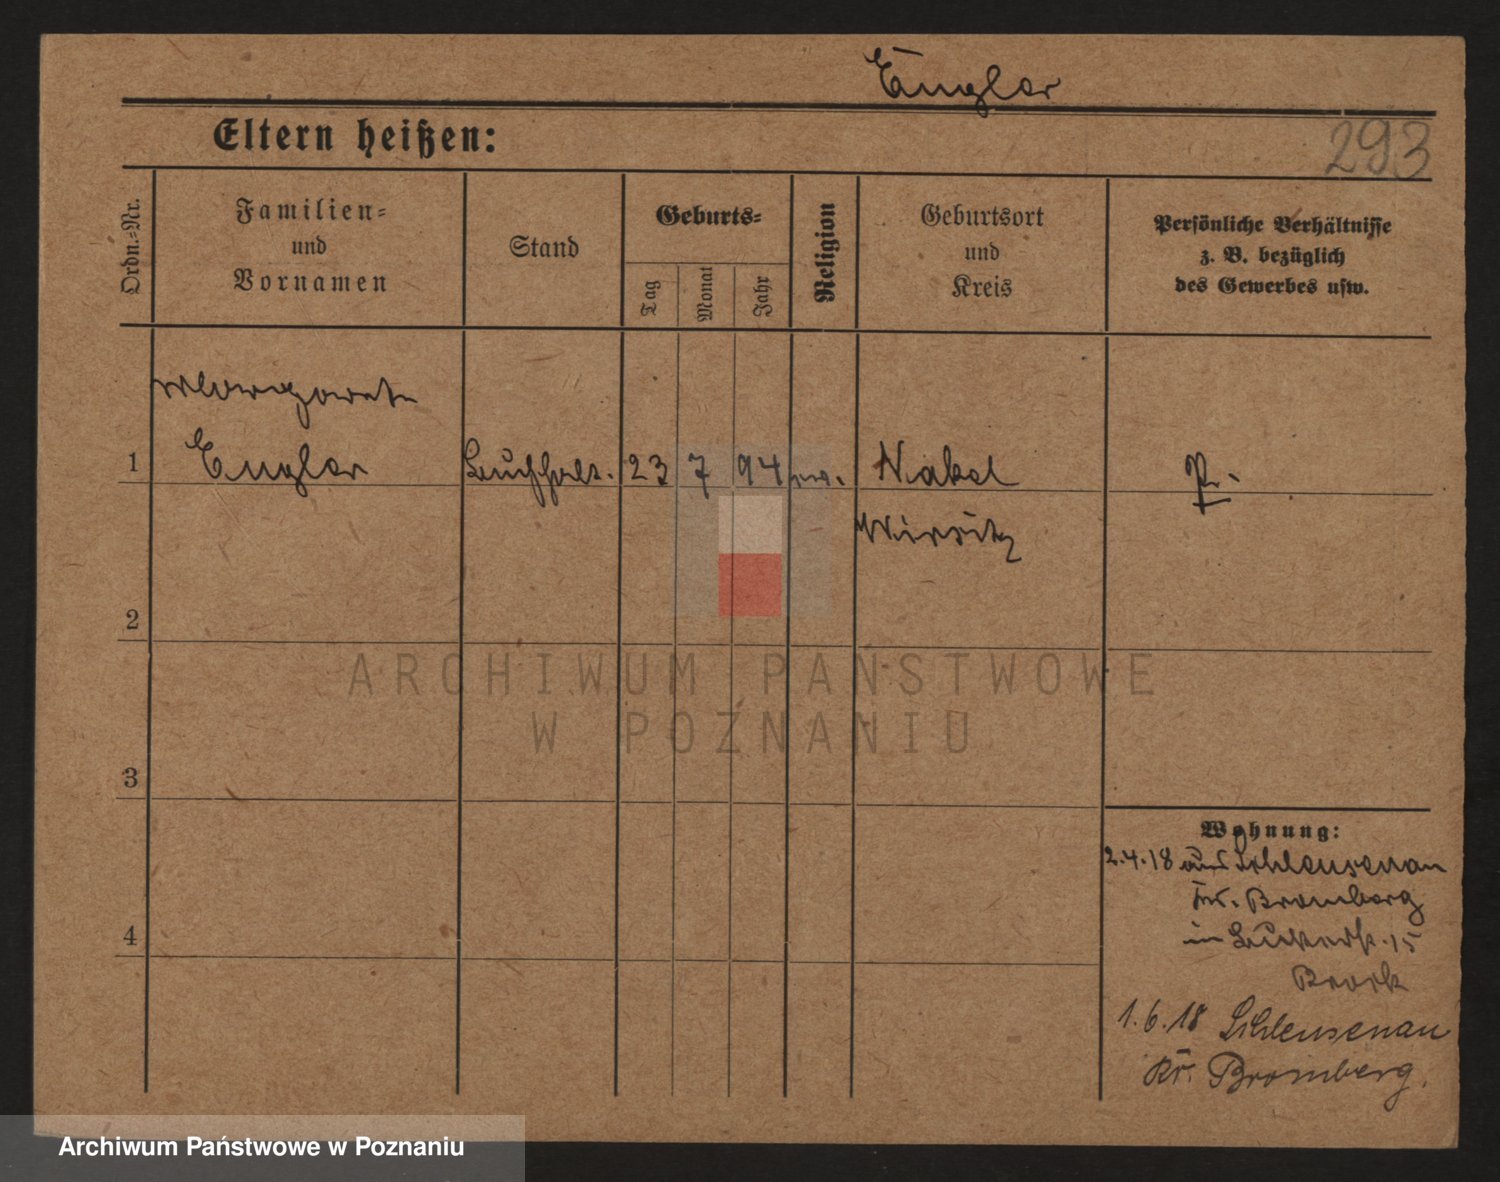 Engler
Eltern heißen:
293
Ordn.=Nr.
Familien=
und
Vornamen
Stand
Geburts=
Tag
Monat
Jahr
Religion
Geburtsort
und
Kreis
Persönliche Verhältnisse
z. B. bezüglich
des Gewerbes usw.
Margarete
1 Engler Buchhalt. 23 7 94 ev. Nakel Pr.
Wirsitz
2
3
4
Wohnung:
2.4.18 aus Schleusenau
Kr. Bromberg
in 15
1.6.18 Schleusenau
Kr. Bromberg.
ARCHIWUM PAŃSTWOWE
W POZNANIU
Archiwum Państwowe w Poznaniu